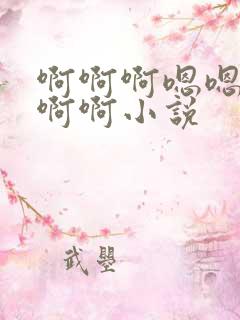 啊啊啊嗯嗯
啊啊小説
武曌